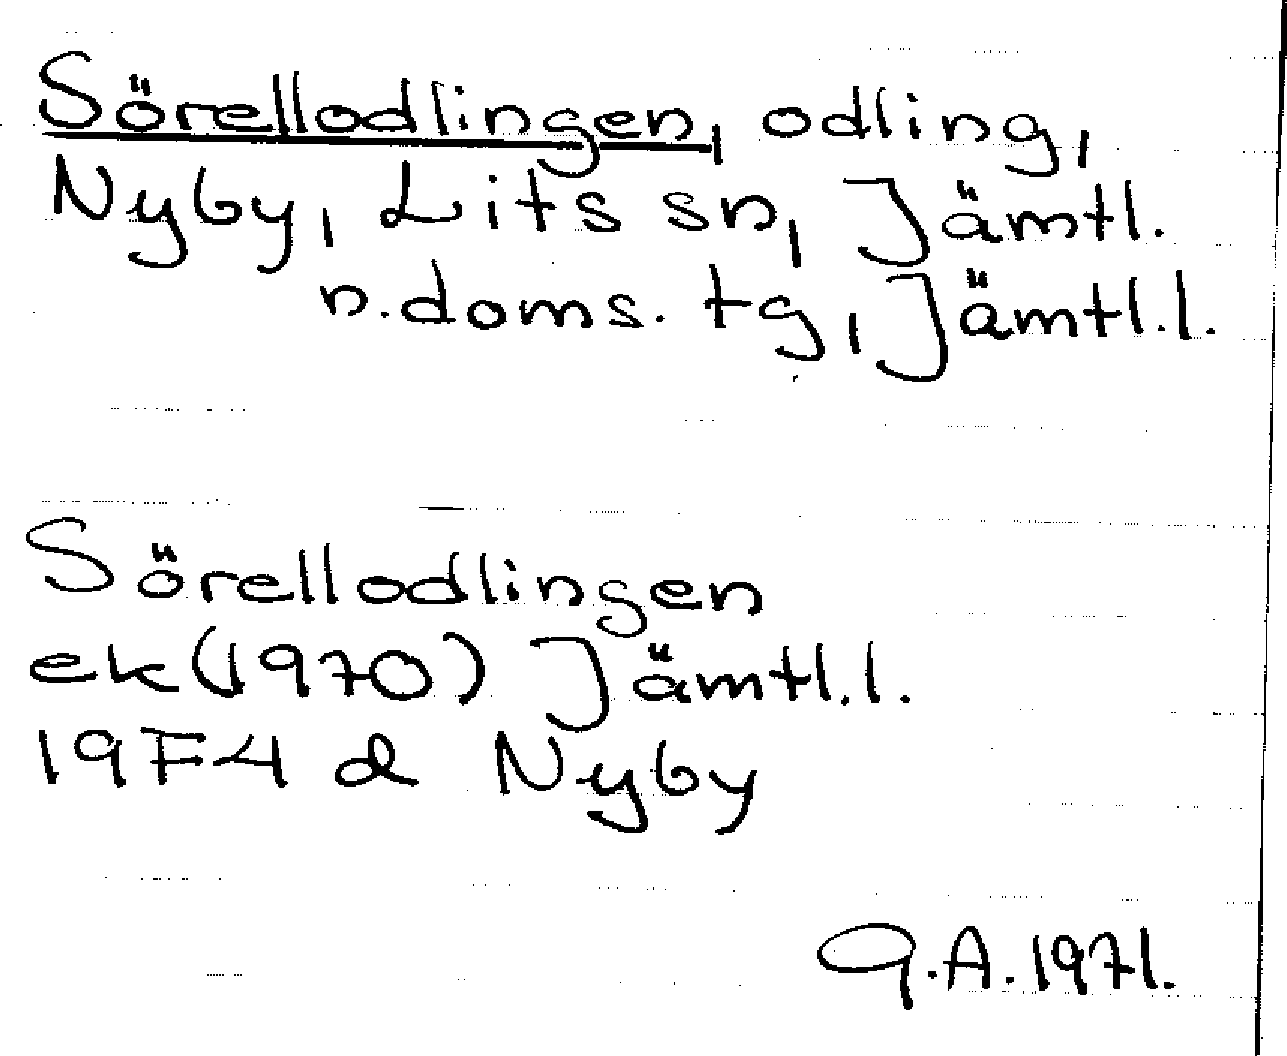 Sörellodlingen, odling,
Nyby, Lits sn, Jämtl.
n.doms. tg, Jämtl.l.
Sörellodlingen
ek(1970) Jämtl.l.
19F4 d Nyby
G.A.1971.